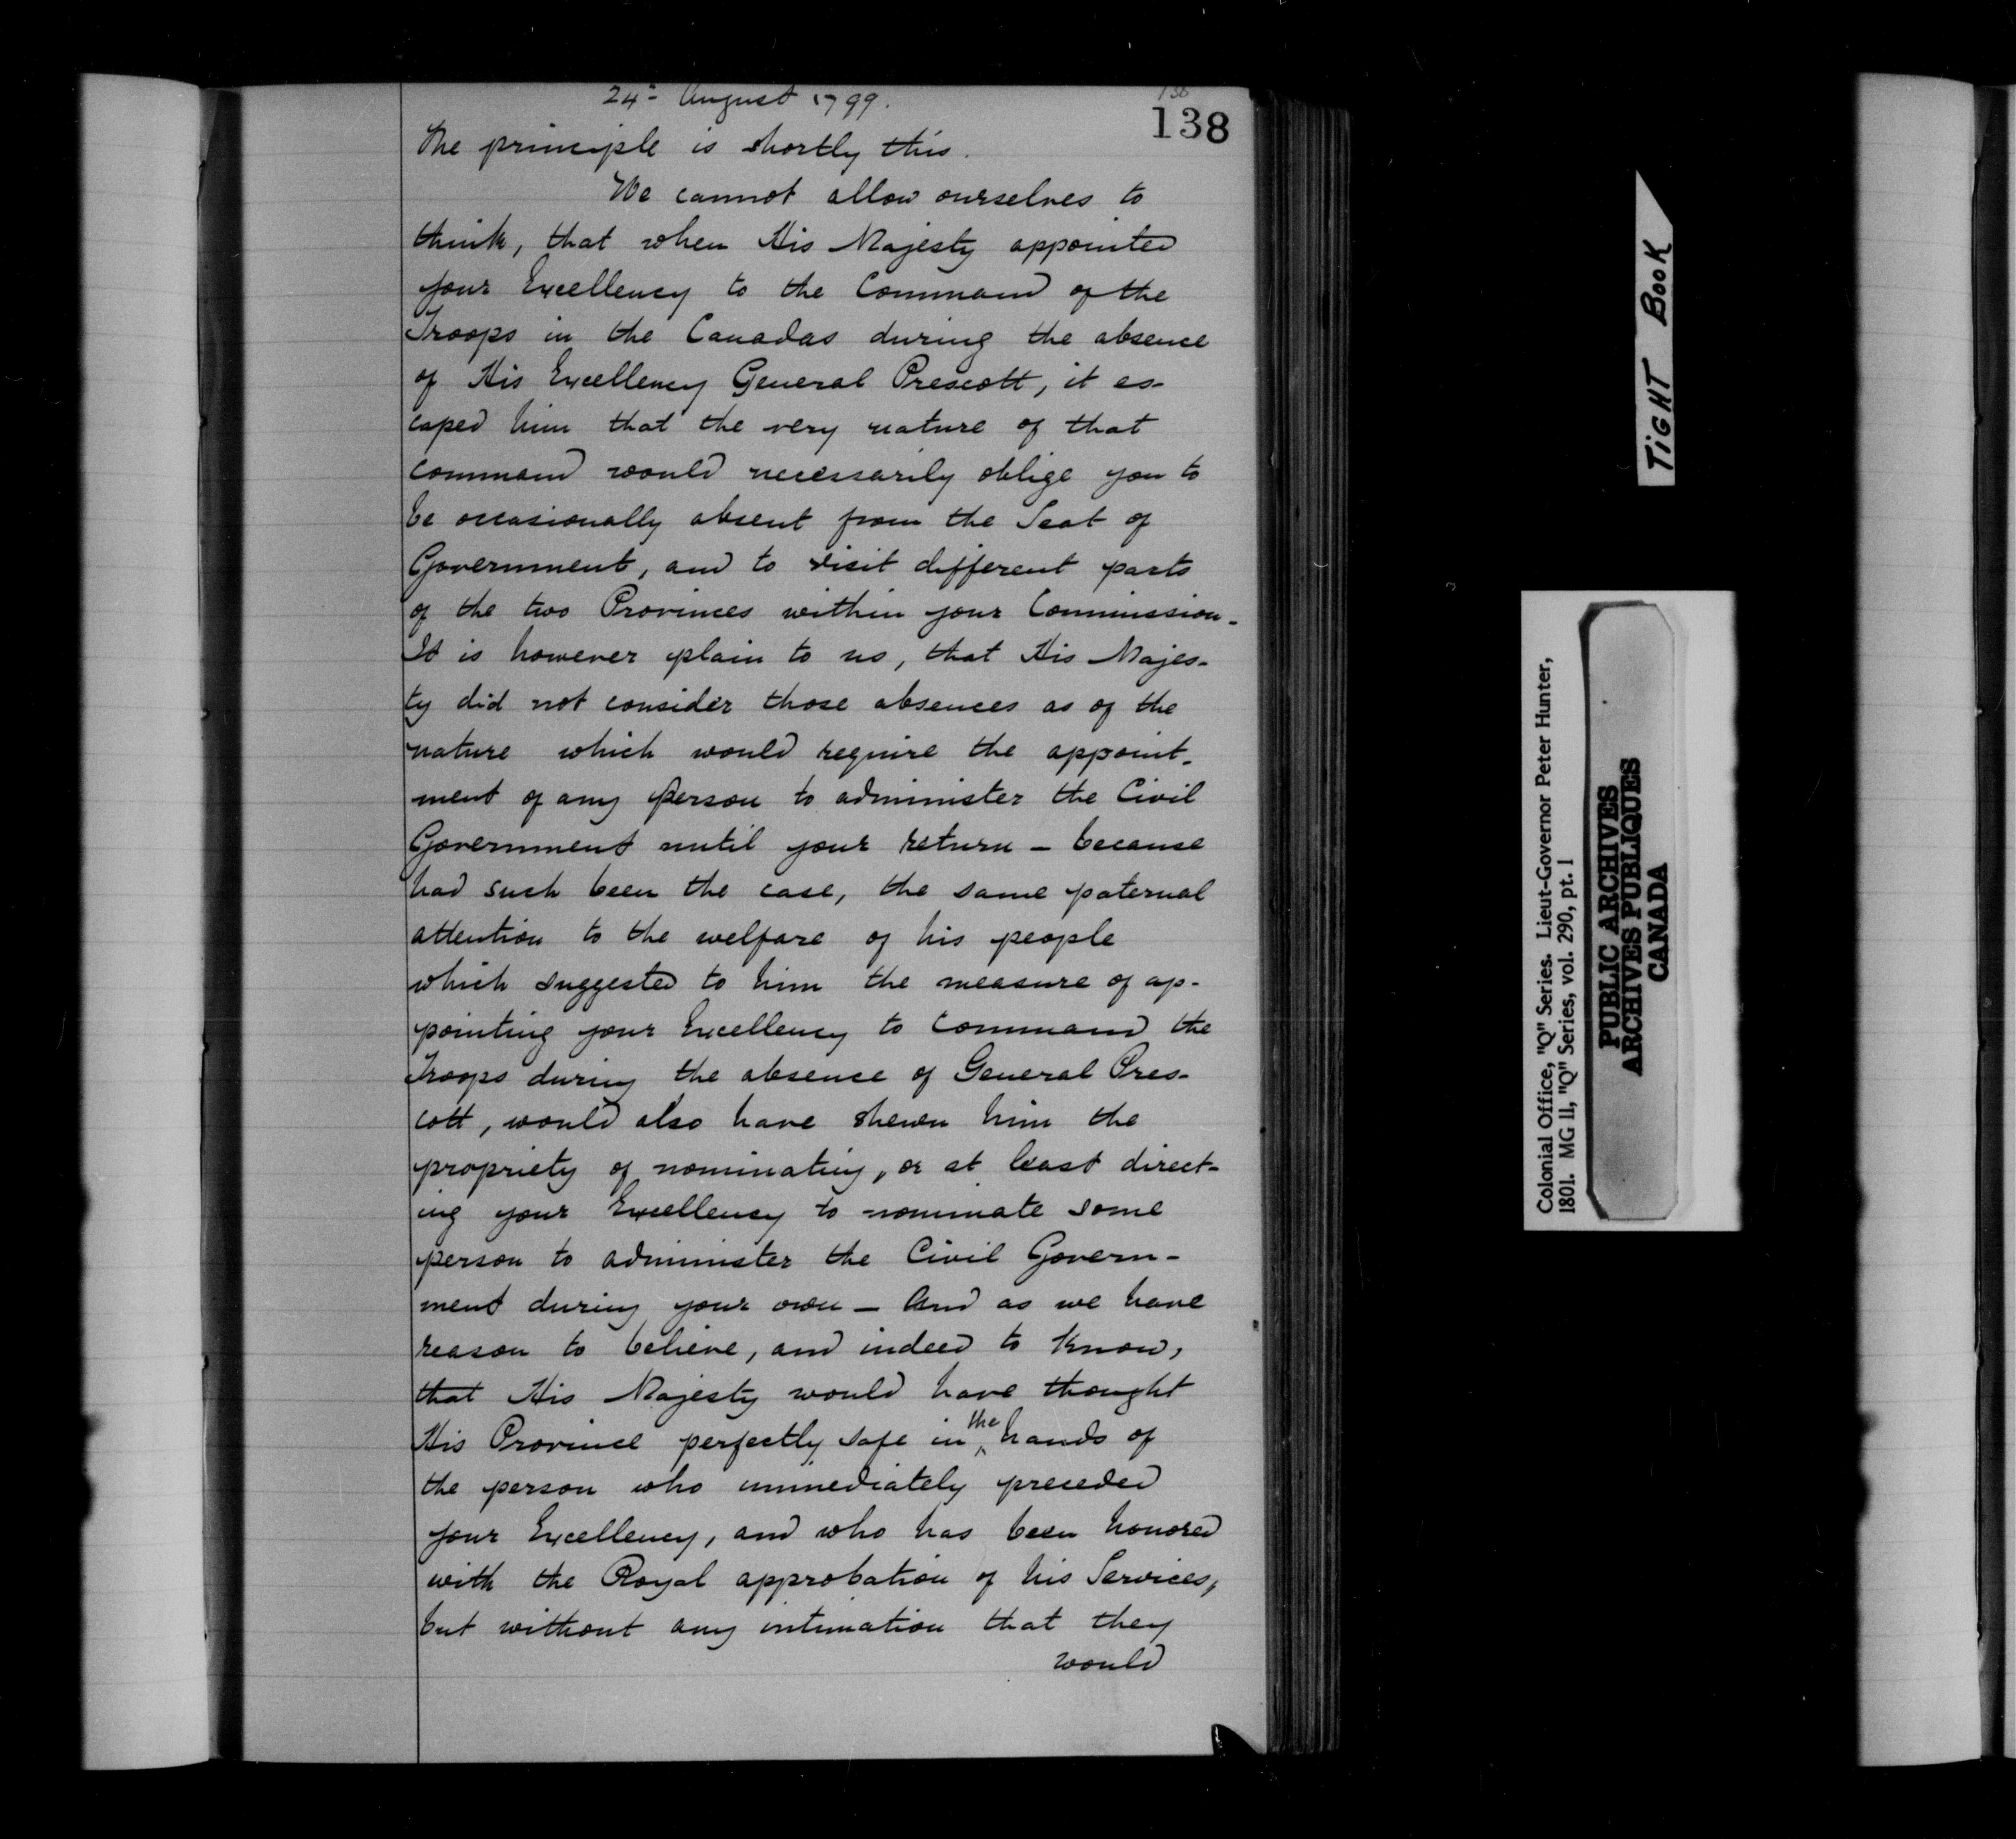 24th August 1799.
138
138
The principle is shortly this.
We cannot allow ourselves to
think, that when His Majesty appointed
your Excellency to the Command of the
Troops in the Canadas during the absence
of His Excellency General Prescott, it es-
caped him that the very nature of that
command would necessarily oblige you to
be occasionally absent from the Seat of
Government, and to visit different parts
of the two Provinces within your Commission-
It is however plain to us, that His Majes-
ty did not consider those absences as of the
nature which would require the appoint-
ment of any person to administer the Civil
Government until your return - because
had such been the case, the same paternal
attention to the welfare of his people
which suggested to him the measure of ap-
pointing your Excellency to command the
Troops during the absence of General Pres-
cott, would also have shewn him the
propriety of nominating, or at least direct-
ing your Excellency to nominate some
person to administer the Civil Govern-
ment during your own - And as we have
reason to believe, and indeed to know,
that His Majesty would have thought
His Province perfectly safe in the hands of
the person who immediately preceded
your Excellency, and who has been honored
with the Royal approbation of his Services,
but without any intimation that they
would
TIGHT BOOK
Colonial Office, "Q" Series. Lieut-Governor Peter Hunter,
1801. MG 11, "Q" Series, vol. 290, pt. 1
PUBLIC ARCHIVES
ARCHIVES PUBLIQUES
CANADA